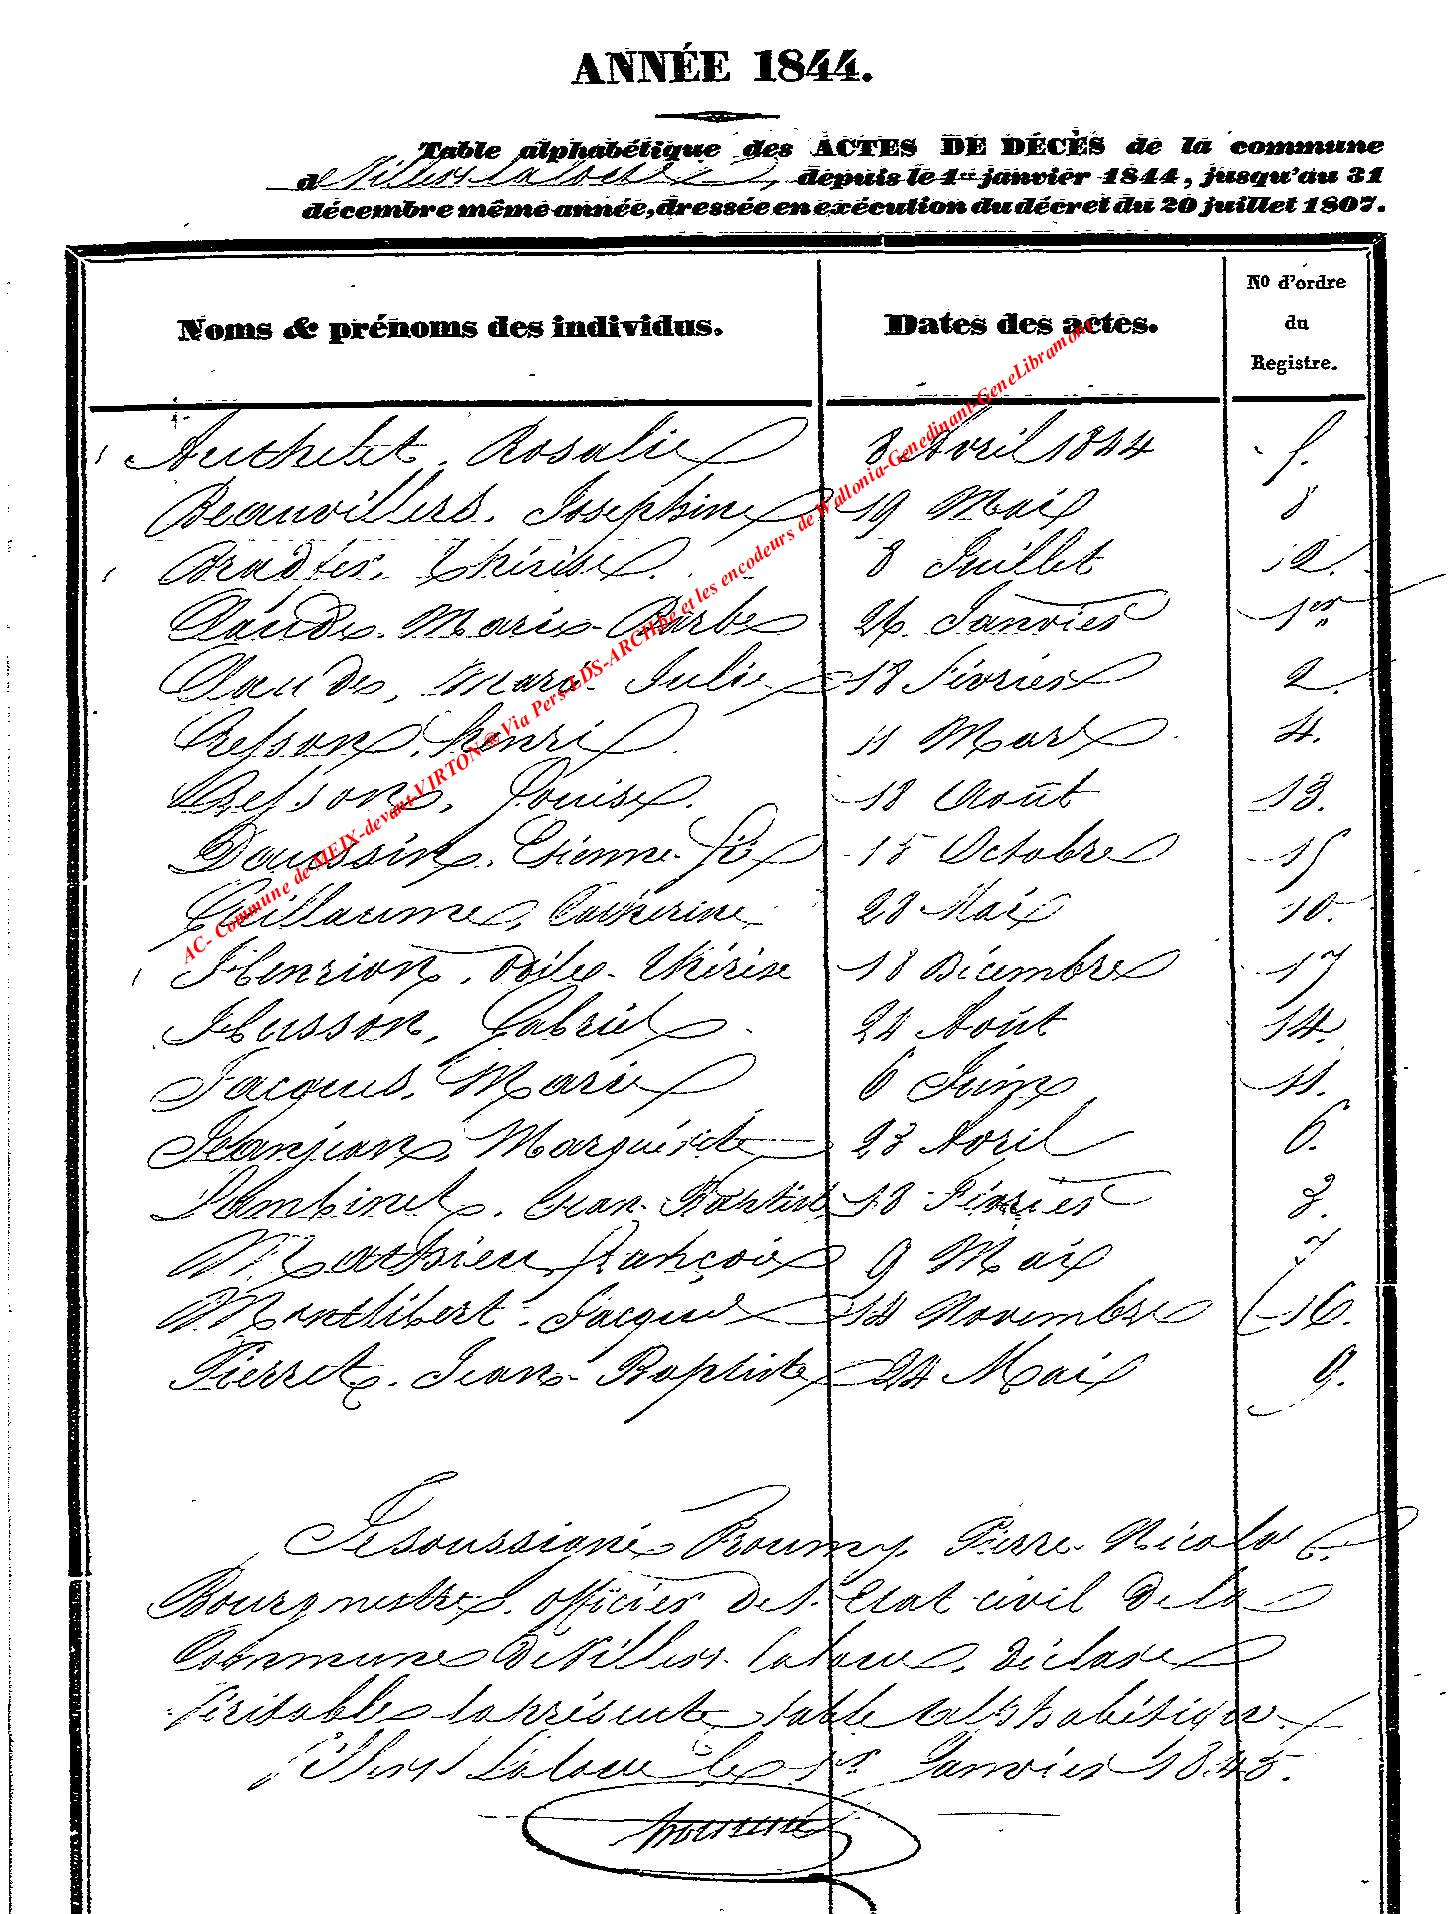 ANNÉE 1844.
Table alphabétique des ACTES DE DÉCÈS de la commune
de Villers la loue, depuis le 1er janvier 1844, jusqu'au 31
décembre même année, dressée en exécution du décret du 20 juillet 1807.
Noms & prénoms des individus. Dates des actes. No d'ordre du Registre.
Authelet Rosalie 8 Avril 1844 5.
Beauvillers. Josephine 19 Mai 8
Bradfer, Thérèse. 8 Juillet 12.
Claude. Marie-Barbe 26 Janvier 1er
Claude, Marie Julie 18 Février 2.
Cresson, henri 11 Mars 4.
Cresson, Louise. 18 Août 13.
Daussin. Etienne. 15 Octobre 15
Guillaume, Catherine 28 Mai 10.
Henrion, Odile-Thérèse 18 Décembre 17
Husson, Gabriel 24 Août 14.
Jacques, Marie 6 Juin 11.
Jeanjean, Marguerite 23 Avril 6.
Lambinet. Jean-Baptiste 18 Février 3.
Mathieu, françois 9 Mai 7
Montlibert. Jacques 14 Novembre 16.
Pierret. Jean-Baptiste 24 Mai 9.
Je soussigné Proumy. Pierre Nicolas
Bourgmestre. officier de l'Etat civil de la
Commune de Villers la loue. Déclare
Véritable la présente table alphabétique.
Villers Laloue le 1er Janvier 1845.
AC- Commune de MEIX-devant-VIRTON @ Via Pers-LDS-ARCH.be et les encodeurs de Wallonia-Genedinant-GeneLibramont